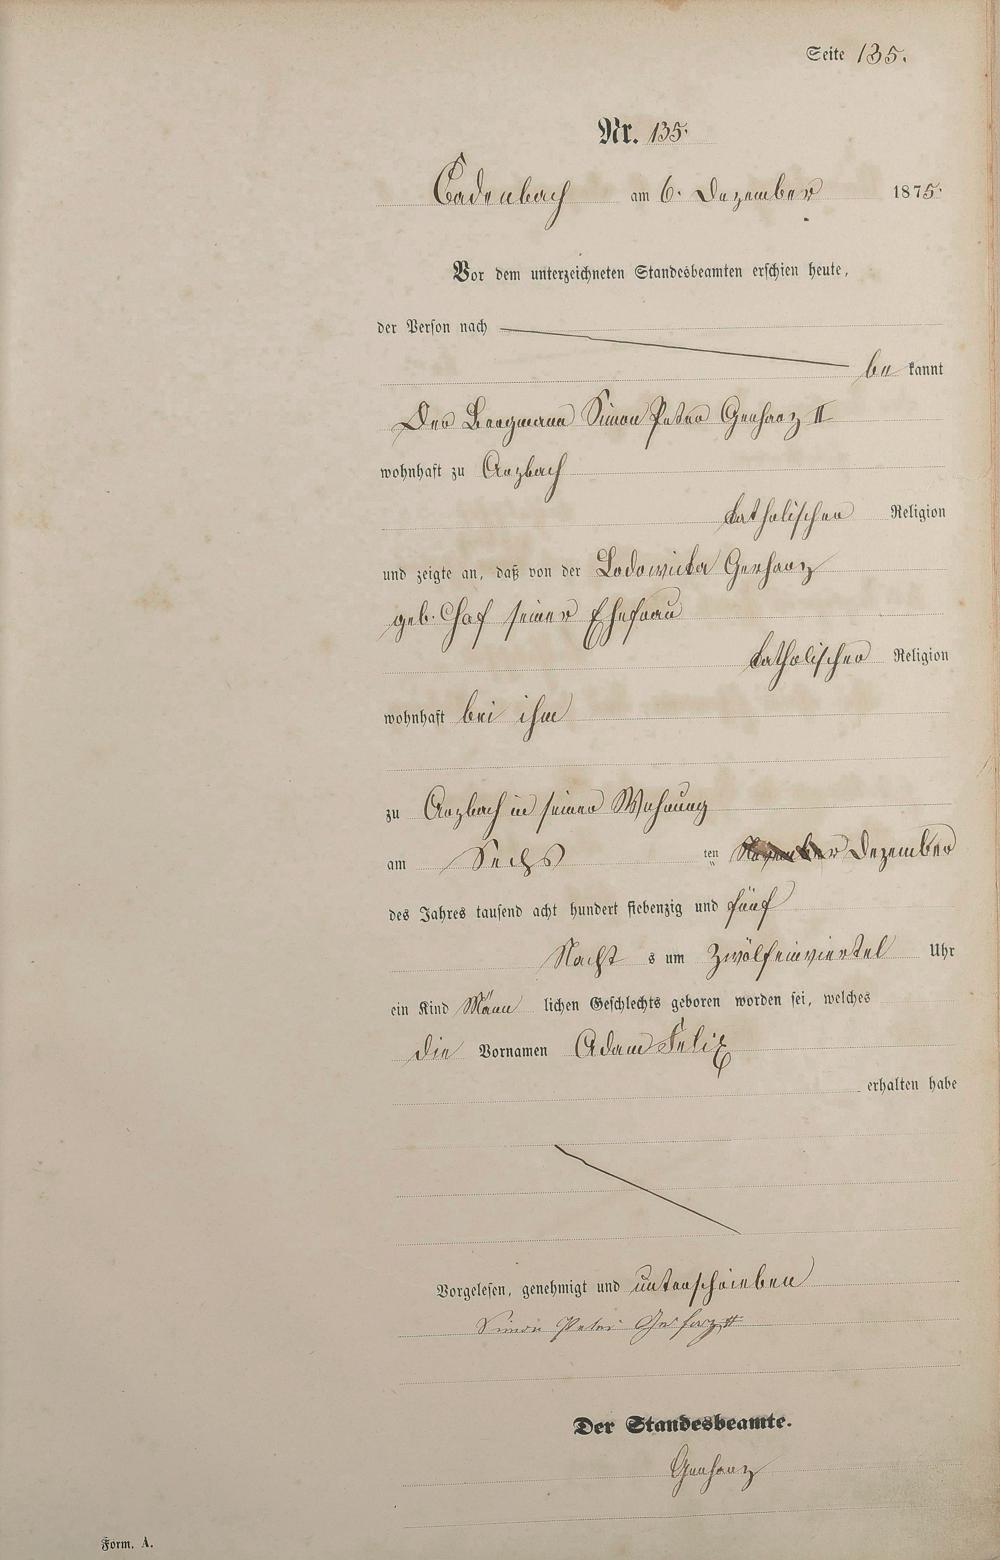 Seite 135.
Nr. 135.
Cadenbach am 6. Dezember 1875.
Vor dem unterzeichneten Standesbeamten erschien heute,
der Person nach
be kannt
Der Bergmann Simon Peter Gerharz II
wohnhaft zu Arzbach
katholischer Religion
und zeigte an, daß von der Lodowicka Gerharz
geb. Hof seiner Ehefrau
katholischer Religion
wohnhaft bei ihm
zu Arzbach in seiner Wohnung
am Sechs ten November Dezember
des Jahres tausend acht hundert siebenzig und fünf
Nacht s um Zwölfeinviertel Uhr
ein Kind Männ lichen Geschlechts geboren worden sei, welches
die Vornamen Adam Felix
erhalten habe
Vorgelesen, genehmigt und unterschrieben
Simon Peter Gerharz II
Der Standesbeamte.
Gerharz
Form. A.